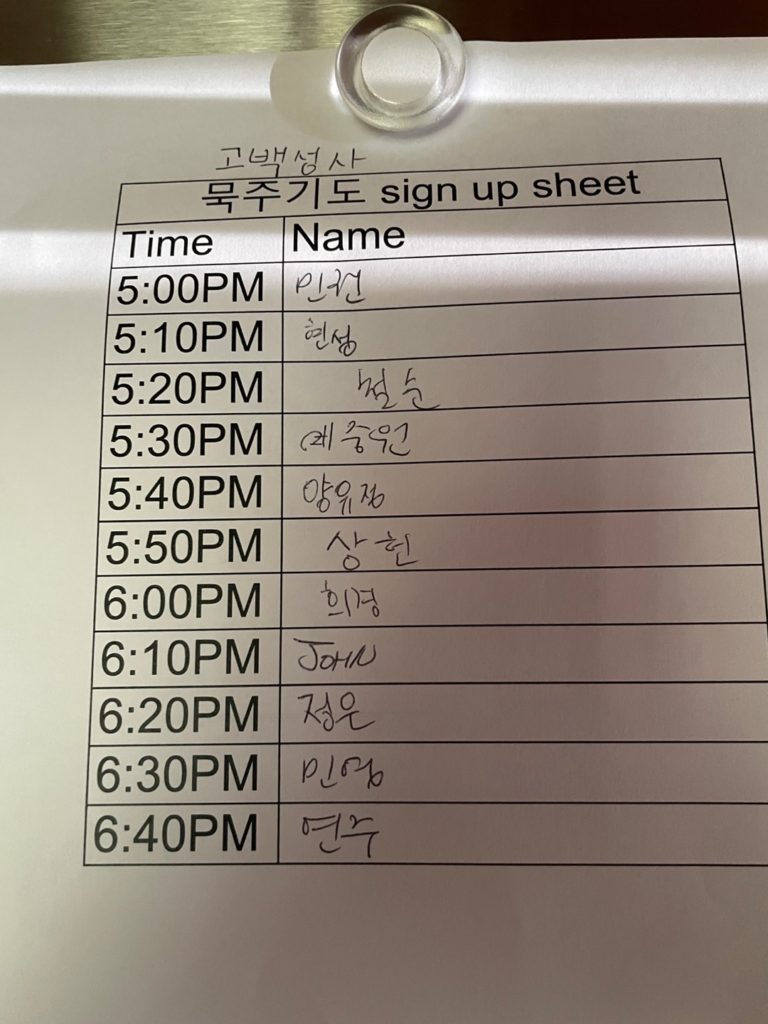 고백성사
묵주기도 sign up sheet
Time Name
5:00PM
5:10PM 현성
5:20PM
5:30PM
5:40PM 양유정
5:50PM 상현
6:00PM 희경
6:10PM JOHN
6:20PM 정은
6:30PM 민영
6:40PM 연주